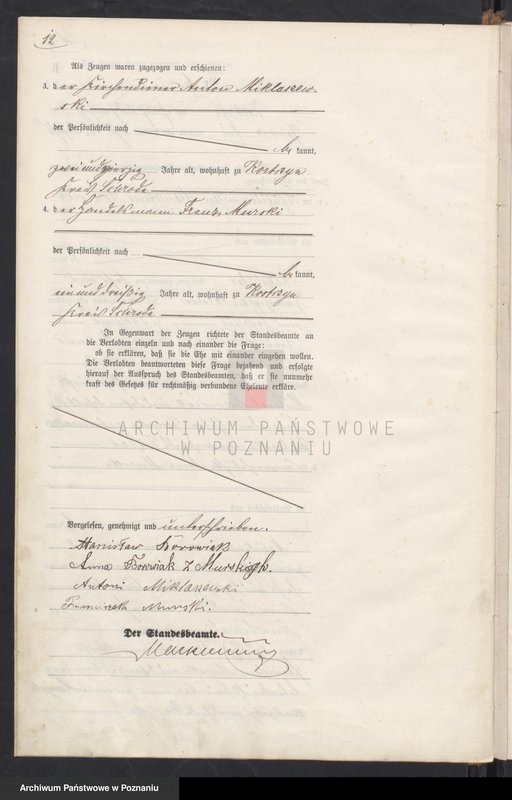 12
Als Zeugen waren zugezogen und erschienen:
3. der Kirchendiener Anton Miklaszew-
ski
der Persönlichkeit nach
be kannt,
zweiundvierzig Jahre alt, wohnhaft zu Kostrzyn
Kreis Schroda
4. der Handelsmann Franz Murski
der Persönlichkeit nach
be kannt,
einunddreißig Jahre alt, wohnhaft zu Kostrzyn
Kreis Schroda
In Gegenwart der Zeugen richtete der Standesbeamte an
die Verlobten einzeln und nach einander die Frage:
ob sie erklären, daß sie die Ehe mit einander eingehen wollen.
Die Verlobten beantworteten diese Frage bejahend und erfolgte
hierauf der Ausspruch des Standesbeamten, daß er sie nunmehr
kraft des Gesetzes für rechtmäßig verbundene Eheleute erkläre.
ARCHIWUM PAŃSTWOWE
W POZNANIU
Vorgelesen, genehmigt und unterschrieben.
Stanisław Borowiak
Anna Borowiak Z Murskich.
Antoni Miklaszewski
Franciszek Murski.
Der Standesbeamte.
Archiwum Państwowe w Poznaniu